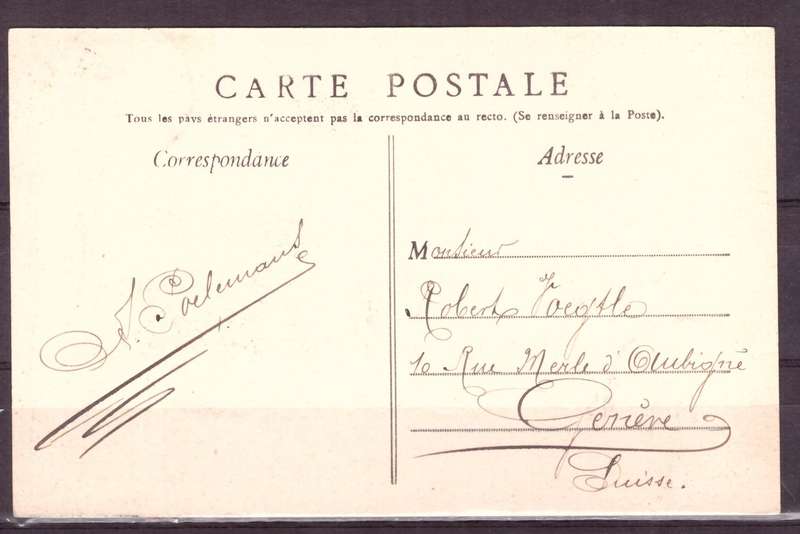 CARTE POSTALE
Tous les pays étrangers n'acceptent pas la correspondance au recto. (Se renseigner à la Poste).
Correspondance
Adresse
Monsieur
Robert Voegtle
10 Rue Merle d'Aubigné
Genève
Suisse.
A. Poelemans